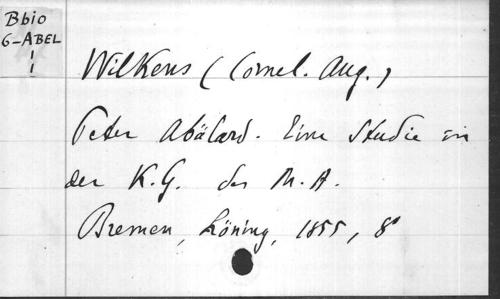 Bbio
6-ABEL
1
1
Wilkens (Cornel. Aug.)
Peter Abälard. Eine Studie in
der K.G. des M.A.
Bremen, Löning, 1855, 8°